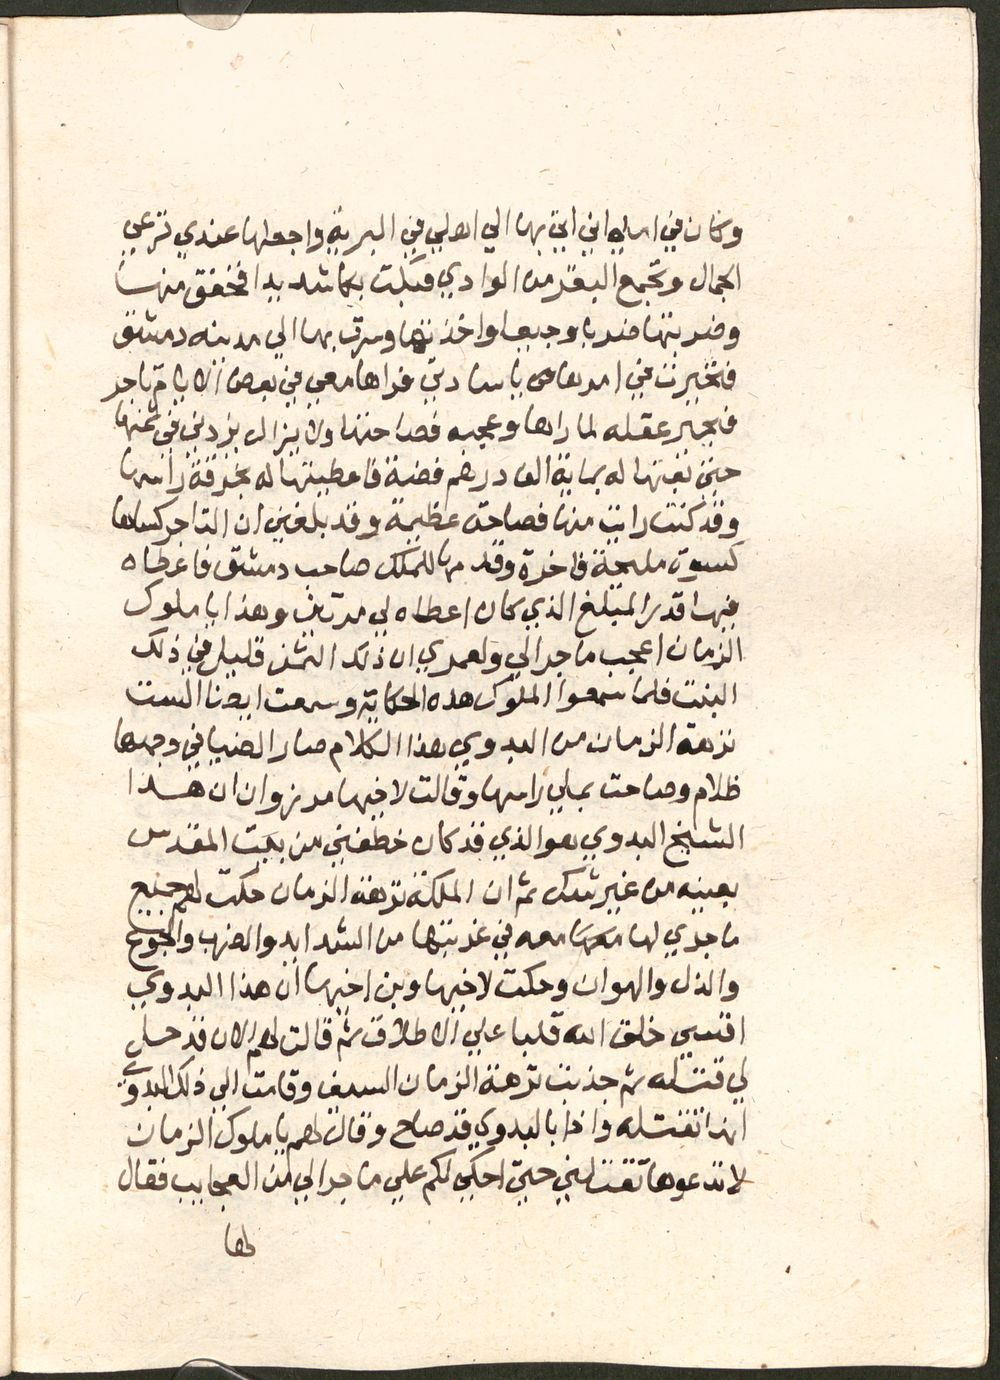 وكان في املي اني اتي بها الي اهلي في البرية واجعلها عندي ترعي
الجمال وتجمع البعر من الوادي فبكت بكا شديدا فحنقت منها
وضربتها ضربا وجيعا واخذتها وسرت بها الي مدينه دمشق
فتحيرت في امرها يا سادتي فراها معي في بعض الايام تاجر
فتحير عقله لما راها وعجبه فصاحتها ولا يزال يزدني في ثمنها
حتي بعتها له بماية الف درهم فضة فاعطيتها له بخرقة راسها
وقد كنت رايت منها فصاحة عظيمة وقد بلغني ان التاجر كساها
كسوة مليحة فاخرة وقدمها للملك صاحب دمشق فاعطاه
فيها قدر المبلغ الذي كان اعطاه لي مرتين وهذا يا ملوك
الزمان اعجب ما جرا لي ولعمري ان ذلك الثمن قليل في ذلك
البنت فلما سمعوا الملوك هذه الحكاية وسمعت ايضا الست
نزهة الزمان من البدوي هذا الكلام صار الضيا في وجهها
ظلام وصاحت بملي راسها وقالت لاخيها مرزوان ان هذا
الشيخ البدوي هو الذي قد كان خطفني من بيت المقدس
بعينه من غير شك ثم ان الملكة نزهة الزمان حكت لهم جميع
ما جري لها معه في غربتها من الشدايد والضرب والجوع
والذل والهوان وحكت لاخيها وبن اخيها ان هذا البدوي
اقسي خلق الله قلبا علي الاطلاق ثم قالت لهم الان قد حل
لي قتله ثم جذبت نزهة الزمان السيف وقامت الي ذلك البدوي
انها تقتله واذا بالبدوي قد صاح وقال لهم يا ملوك الزمان
لا تدعوها تقتلني حتي احكي لكم علي ما جرا لي من العجايب فقال
لها